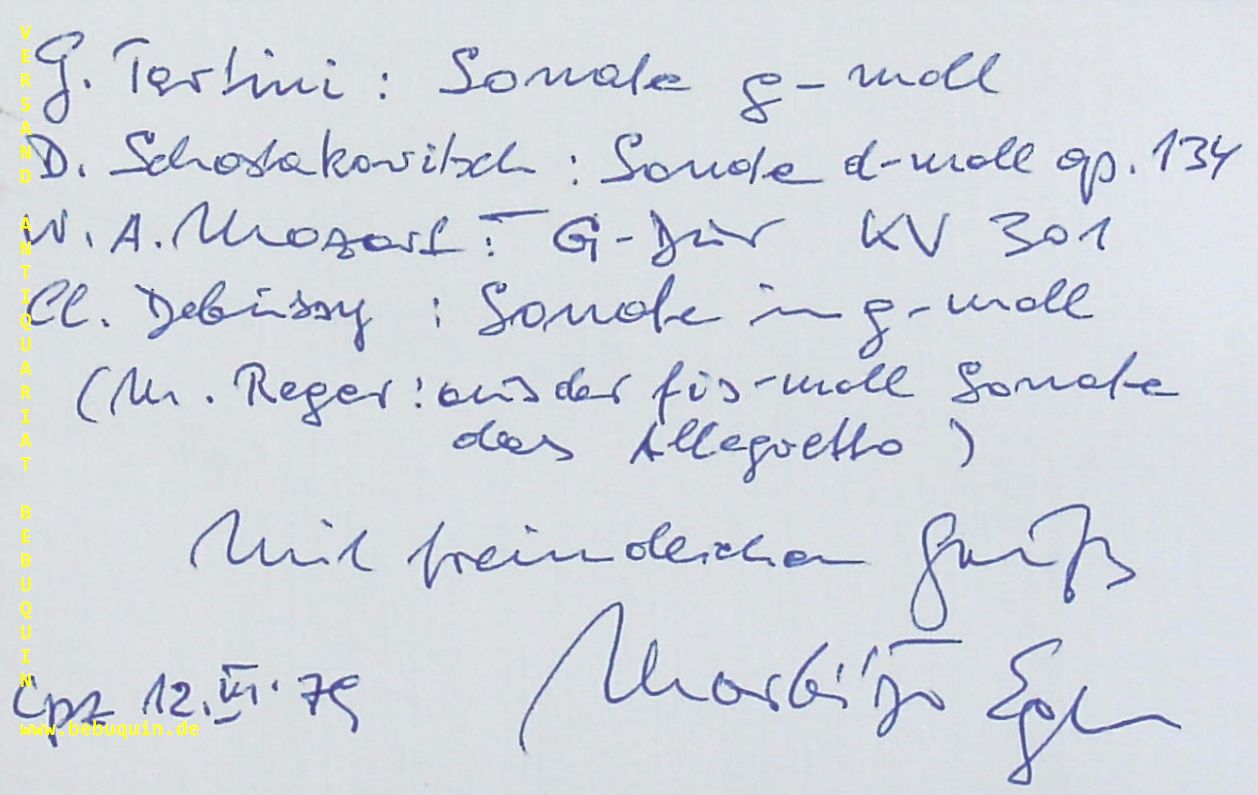 G. Tartini : Sonate g-moll
D. Schostakowitsch : Sonate d-moll op. 134
W. A. Mozart : G-Dur KV 301
Cl. Debussy : Sonate in g-moll
(M. Reger : aus der fis-moll Sonate
das Allegretto )
Mit freundlichem Gruß
Lpz 12. III. 79
VERSAND ANTIQUARIAT BEBUQUIN
www.bebuquin.de